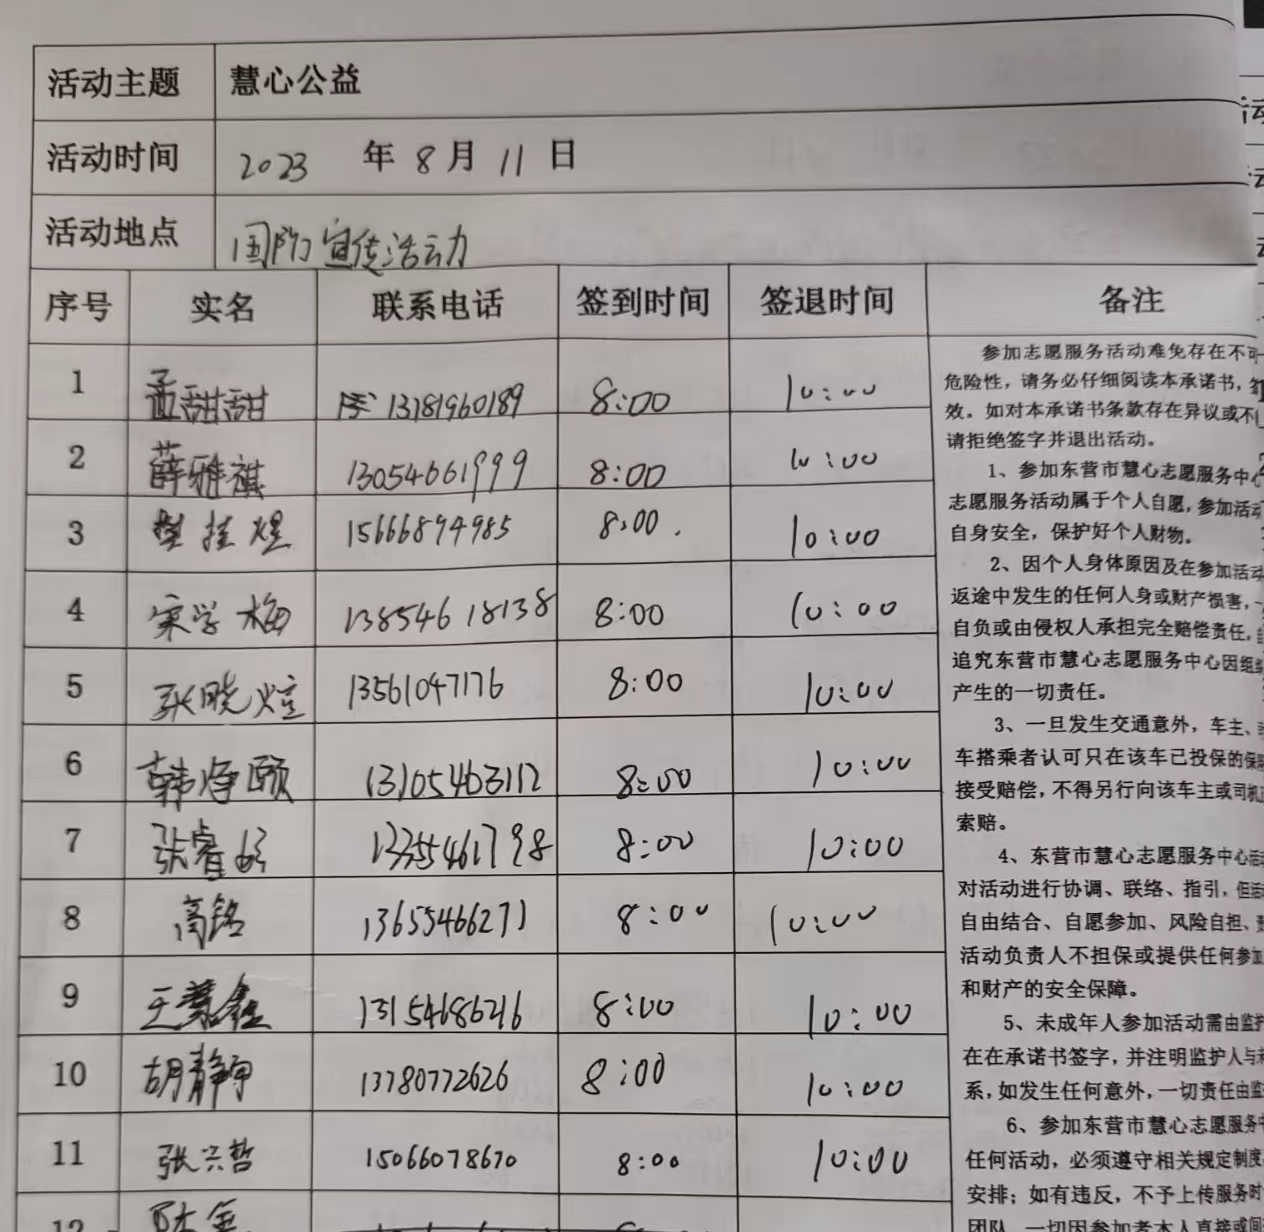 活动主题 慧心公益
活动时间 2023 年 8 月 11 日
活动地点 国防宣传活动
序号 实名 联系电话 签到时间 签退时间 备注
1 孟甜甜 13181960189 8:00 10:00
2 薛雅祺 13054661999 8:00 10:00
3 15666894985 8:00 10:00
4 宋学梅 13854618138 8:00 10:00
5 张晓煊 13561047176 8:00 10:00
6 韩烨颐 13105463112 8:00 10:00
7 张睿 13355461798 8:00 10:00
8 高铭 13655466271 8:00 10:00
9 王慧鑫 13154686216 8:00 10:00
10 胡静 13780772626 8:00 10:00
11 张兴哲 15066078670 8:00 10:00
12
参加志愿服务活动难免存在不可
危险性，请务必仔细阅读本承诺书，
效。如对本承诺书条款存在异议或不
请拒绝签字并退出活动。
1、参加东营市慧心志愿服务中心
志愿服务活动属于个人自愿，参加活动
自身安全，保护好个人财物。
2、因个人身体原因及在参加活动
返途中发生的任何人身或财产损害，
自负或由侵权人承担完全赔偿责任，
追究东营市慧心志愿服务中心因组织
产生的一切责任。
3、一旦发生交通意外，车主、
车搭乘者认可只在该车已投保的保
接受赔偿，不得另行向该车主或司机
索赔。
4、东营市慧心志愿服务中心
对活动进行协调、联络、指引，但
自由结合、自愿参加、风险自担、
活动负责人不担保或提供任何参加
和财产的安全保障。
5、未成年人参加活动需由监护
在在承诺书签字，并注明监护人与
系，如发生任何意外，一切责任由监
6、参加东营市慧心志愿服务中
任何活动，必须遵守相关规定制度
安排；如有违反，不予上传服务时
团队，一切因参加者本人直接或间